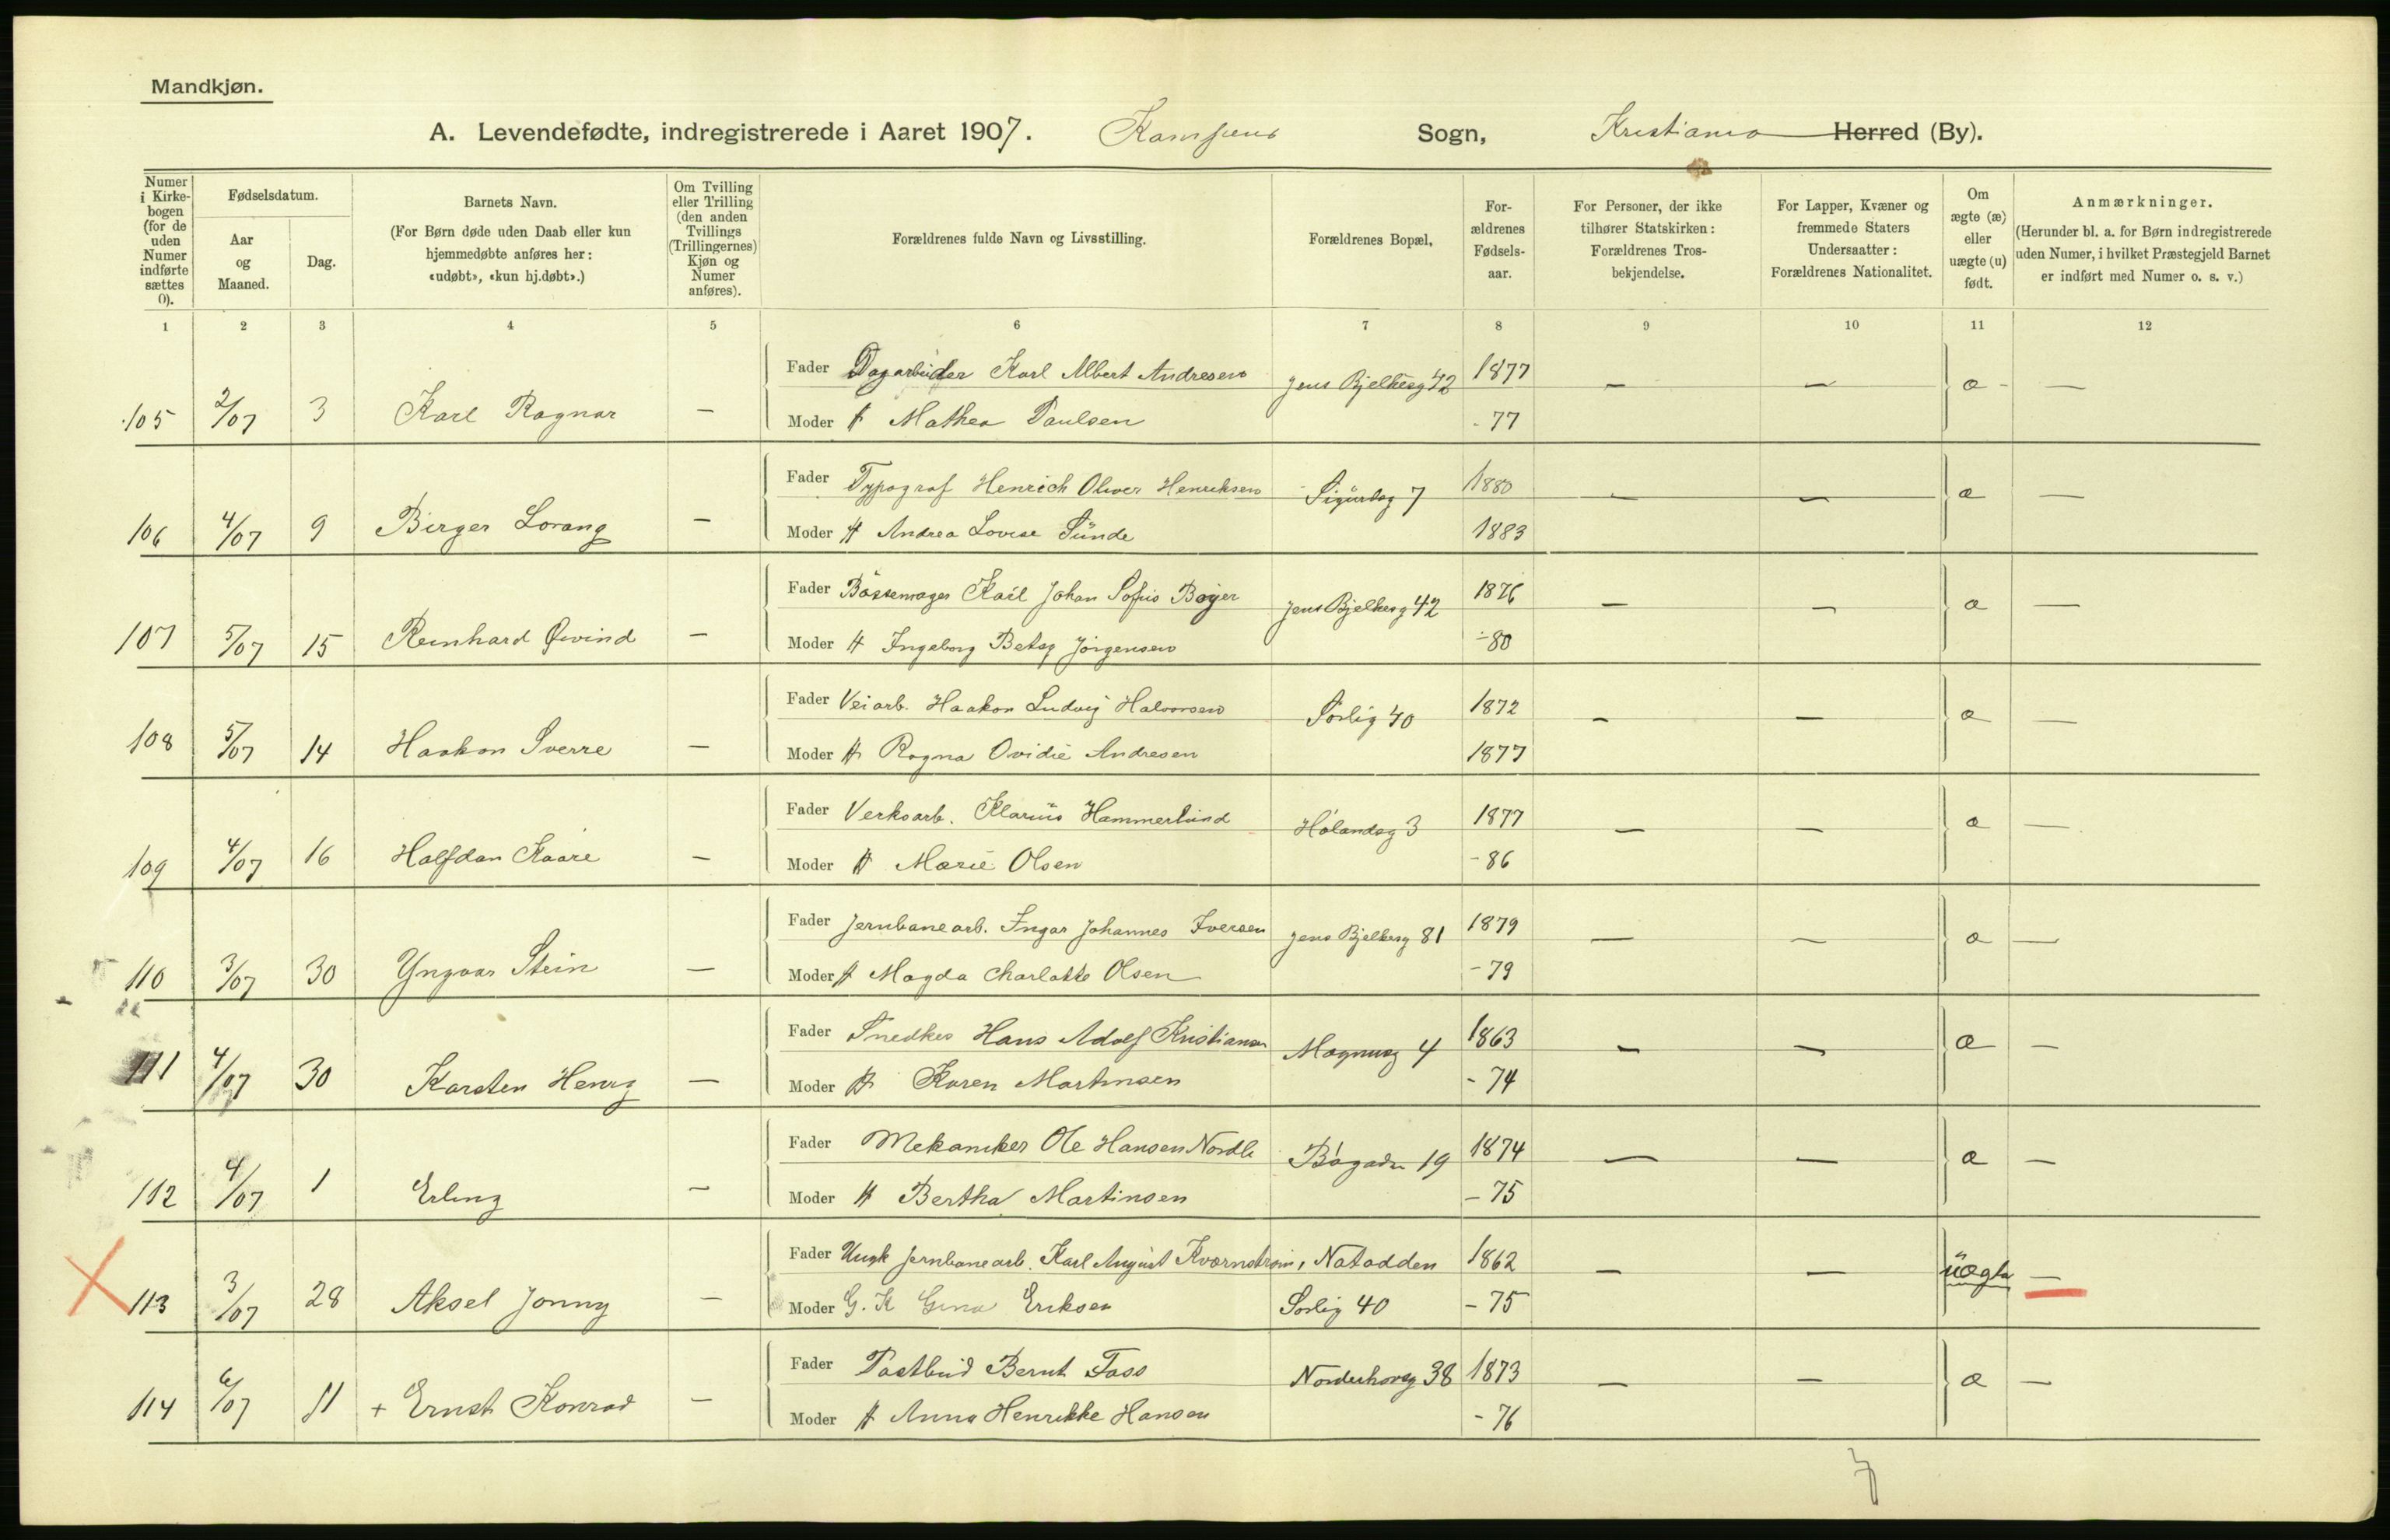 Mandkjøn.
A. Levendefødte, indregistrerede i Aaret 1907. Kampens Sogn, Kristiania Herred (By).
Numer i Kirkebogen (for de uden Numer indførte sættes 0).
Fødselsdatum.
Aar og Maaned.
Dag.
Barnets Navn.
(For Børn døde uden Daab eller kun hjemmedøbte anføres her: «udøbt», «kun hj.døbt».)
Om Tvilling eller Trilling (den anden Tvillings (Trillingernes) Kjøn og Numer anføres).
Forældrenes fulde Navn og Livsstilling.
Forældrenes Bopæl,
Forældrenes Fødselsaar.
For Personer, der ikke tilhører Statskirken: Forældrenes Trosbekjendelse.
For Lapper, Kvæner og fremmede Staters Undersaatter: Forældrenes Nationalitet.
Om ægte (æ) eller uægte (u) født.
Anmærkninger.
(Herunder bl. a. for Børn indregistrerede uden Numer, i hvilket Præstegjeld Barnet er indført med Numer o. s. v.)
1 2 3 4 5 6 7 8 9 10 11 12
Fader Dagarbeider Karl Albert Andresen Jens Bjelkesg 42 1877 — — æ —
105 2/07 3 Karl Ragnar — Moder H Mathea Paulsen - 77
Fader Typograf Henrich Oliver Henriksen Sigurdsg 7 1880 — — æ —
106 4/07 9 Birger Lorang — Moder H Andrea Lovise Sunde 1883
Fader Bössemager Karl Johan Sofus Bøyer Jens Bjelkesg 42 1876 — — æ —
107 5/07 15 Reinhard Øivind — Moder H Ingeborg Betsy Jörgensen - 80
Fader Veiarb. Haakon Ludvig Halvorsen Sörlig 40 1872 — — æ —
108 5/07 14 Haakon Sverre — Moder H Ragna Ovidie Andresen 1877
Fader Verksarb. Klarius Hammerlund Hølandsg 3 1877 — — æ —
109 4/07 16 Halfdan Kaare — Moder H Marie Olsen - 86
Fader Jernbanearb. Ingar Johannes Iversen Jens Bjelkesg 81 1879 — — æ —
110 3/07 30 Yngvar Stein — Moder H Magda Charlotte Olsen - 79
Fader Snedker Hans Adolf Kristiansen Magnusg 4 1863 — — æ —
111 4/07 30 Karsten Henry — Moder H Karen Martinsen - 74
Fader Mekaniker Ole Hansen Nordli Bögaden 19 1874 — — æ —
112 4/07 1 Erling — Moder H Bertha Martinsen - 75
Fader Ungk Jernbanearb. Karl August Kvarnström, Notodden 1862 — — uægte —
113 3/07 28 Aksel Jonny — Moder G. K Gina Eriksen Sorlig 40 - 75
Fader Postbud Bernt Foss Norderhovsg 38 1873 — — æ —
114 6/07 11 + Ernst Konrad — Moder H Anna Henrikke Hansen - 76
7